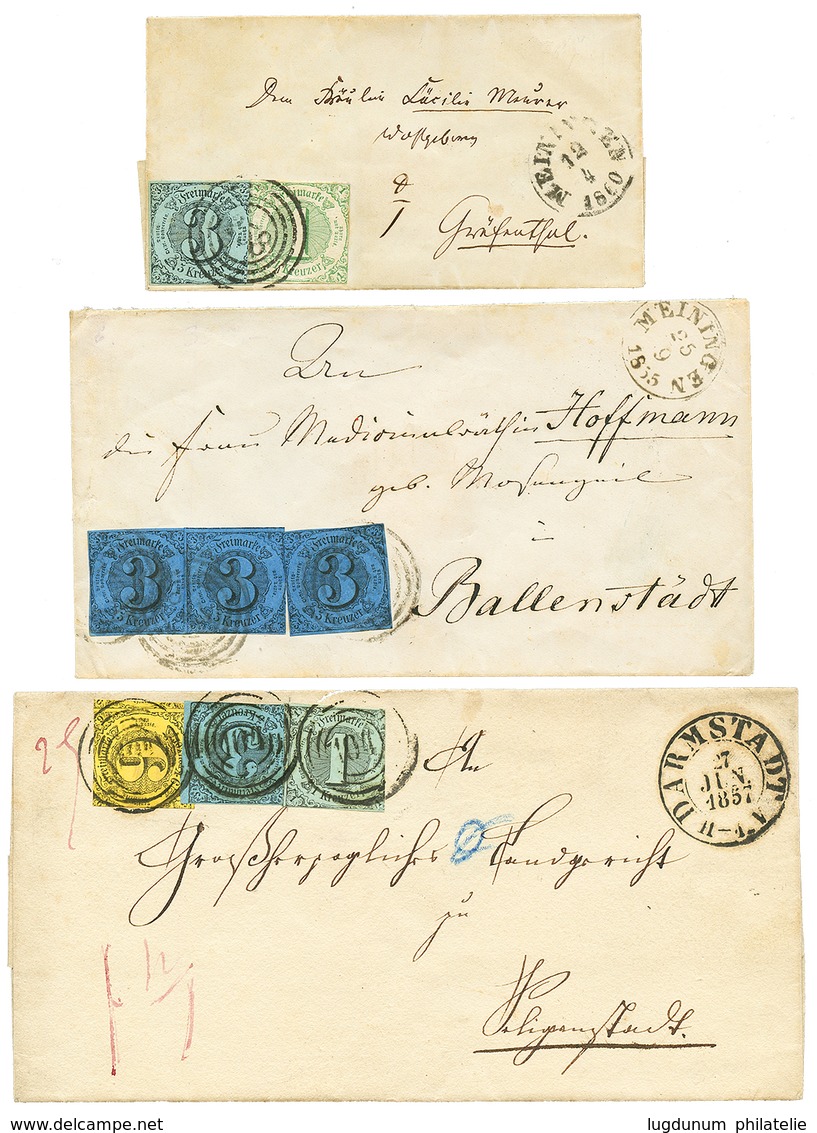 Dem Fräulein Cäcilie Meurer
Wohlgeboren
Gräfenthal.
MEININGEN
12
4
1860
Freimarke
3
3 Kreuzer
Freimarke
1
Kreuzer
MEININGEN
25
9
1855
An
die Frau Medicinalräthin Hoffmann
geb. Mosengeil
in
Ballenstädt
Freimarke
3
3 Kreuzer
Freimarke
3
3 Kreuzer
Freimarke
3
3 Kreuzer
DARMSTADT
27
JUN.
1857
Freimarke
6
3
Freimarke
1
1 Kreuzer
An
Großherzogliches Landgericht
zu
Seligenstadt.
delcampe.net
lugdunum philatelie